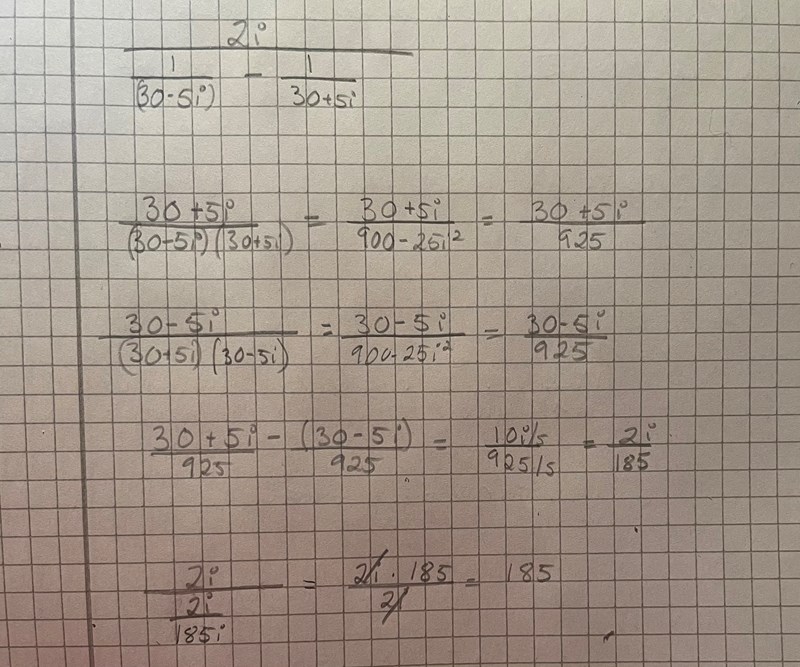 2i
1/(30-5i) - 1/30+5i
30+5i/(30-5i)(30+5i) = 30+5i/900-25i² = 30+5i/925
30-5i/(30+5i)(30-5i) = 30-5i/900-25i² = 30-5i/925
30+5i/925 - (30-5i)/925 = 10i/5/925/5 = 2i/185
2i/2i/185i = 2i·185/2i = 185